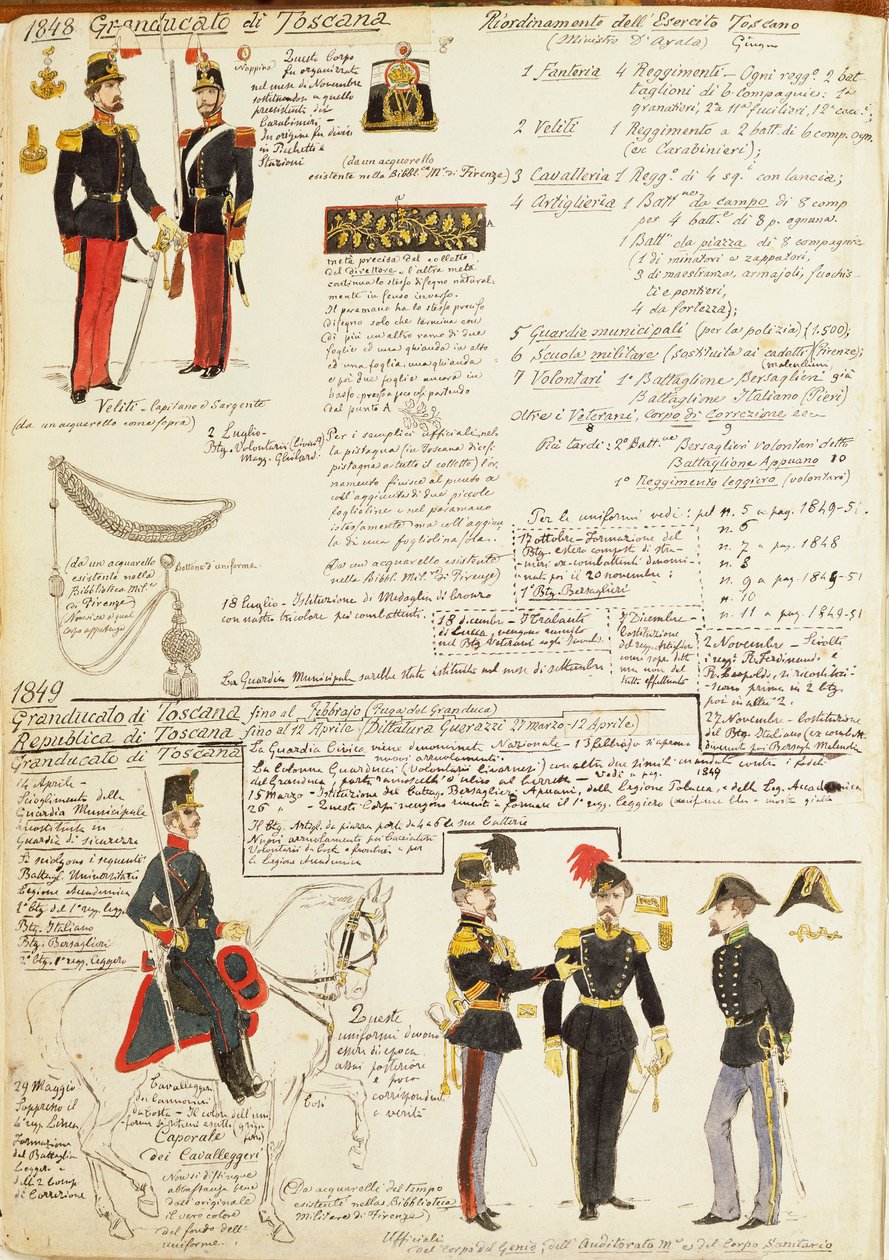 1848 Granducato di Toscana
Nappina
Questo Corpo
fu organizzato
nel mese di Novembre
sostituendosi a quello
preesistente dei
Carabinieri -
In origine fu diviso
in Picchetti e
Stazioni
(da un acquarello
esistente nella Bibbl.ca M.e di Firenze)
Veliti - Capitano e Sergente
(da un acquarello come sopra)
metà precisa del colletto
del direttore - l'altra metà
continua lo stesso disegno natural-
mente in senso inverso.
Il paramano ha lo stesso preciso
disegno solo che termina con
di più un altro ramo di due
foglie ed una ghianda in alto
ed una foglia, una ghianda
e poi due foglie ancora in
basso: pressa poco così partendo
dal punto A
2 Luglio -
Btg. Volontari
Magg. Ghilardi
Per i semplici ufficiali nel
la pistagna (in Toscana dicesi
pistagna a tutto il colletto) l'or-
namento finisce al punto a
coll'aggiunta di due piccole
foglioline e nel paramano
istessamente ma coll'aggiun-
ta di una fogliolina sola.
(da un acquarello esistente
nella Bibbl. Mil.e di Firenze)
(da un acquarello
esistente nella
Biblioteca Mil.e
di Firenze)
Bottone d'uniforme
18 Luglio - Istituzione di Medaglia di bronzo
con nastro tricolore pei combattenti.
La Guardia Municipale sarebbe stata istituita nel mese di settembre
Riordinamento dell'Esercito Toscano
(Ministro D'Ayala) Giugno
1 Fanteria 4 Reggimenti - Ogni regg.o 2 bat-
taglioni di 6 compagnie: 1a
granatieri, 2a 11a fucilieri, 12a cacc.i;
2 Veliti 1 Reggimento a 2 batt. di 6 comp. ogn.
(ex Carabinieri);
3 Cavalleria 1 Regg.o di 4 sq.i con lancia;
4 Artiglieria 1 Batt.ne da campo di 8 comp.
per 4 batt.e di 8 p. ognuna.
1 Batt.n da piazza di 8 compagnie
(1 di minatori e zappatori,
3 di maestranza, armajoli, fuochis-
ti e pontieri,
4 da fortezza);
5 Guardie municipali (per la polizia) (1.500);
6 Scuola militare (sostituita ai cadetti) (Firenze;
7 Volontari 1o Battaglione Bersaglieri già
Battaglione Italiano (Pieri)
Oltre i Veterani, Corpo di Correzione ecc
8 9
Più tardi: 2o Batt.ne Bersaglieri volontari detto
Battaglione Appuano 10
1o Reggimento leggiero (volontari)
Per le uniformi vedi: pel n. 5 a pag. 1849-51.
n. 6
n. 7 a pag. 1848
n. 8
n. 9 a pag. 1849-51
n. 10
n. 11 a pag. 1849-51
17 ottobre - Formazione del
Btg. estero composto di stra-
nieri ex-combattenti denomi-
nato poi il 20 novembre:
1o Btg. Bersaglieri
18 dicembre - I Trabanti
di Lucca, vengono riuniti
nel Btg. Veterani
7 Dicembre -
Costituzione
2 Novembre - Sciolti
i regg.i R. Ferdinando e
R. Leopoldo, si ricostitui-
scono prima in 2 btg.
poi in altri 2.
27 Novembre - Costituzione
del Btg. Italiano
1849
Granducato di Toscana fino al Febbrajo (Fuga del Granduca)
Republica di Toscana fino al 12 Aprile (Dittatura Guerazzi 27 marzo - 12 Aprile)
Granducato di Toscana
La Guardia Civica viene denominata Nazionale - 13 febbrajo si aprono
nuovi arruolamenti.
La Colonna Guarducci (Volontari livornesi) con altre due simili
Vedi a pag. 1849
15 Marzo - Istituzione del battag. Bersaglieri Apuani, della Legione Polacca, e della Leg. Accademica
26 " - Questi Corpi vengono riuniti a formare il 1o regg. leggiero
Il btg. Artigl. da piazza porta da 4 a 6 le sue batterie
Nuovi arruolamenti pei Cacciatori
Volontari di Costa e frontiera e per
la Legione Accademica
14 Aprile -
Scioglimento della
Guardia Municipale
ricostituita in
Guardie di sicurezza
Si sciolgono i seguenti
Battagl. Universitario
Legione Accademica
1o btg. del 1o regg. legg.
Btg. Italiano
Btg. Bersaglieri
2o btg. 1o regg. leggero
29 Maggio
Soppresso il
4o regg. Linea
Formazione
del Battaglio
Leggero e
delle 2 Comp.
di Correzione
Queste
uniformi devono
essere di epoca
assai posteriore
e poco
corrispondenti
a verità
Così
Caporale
dei Cavalleggeri
Non si distingue
abbastanza bene
dall'originale
il vero colore
del fondo dell'
uniforme.
(Da acquarelli del tempo
esistenti nella Biblioteca
Militare di Firenze)
Ufficiali
del Corpo del Genio, dell'Auditorato M.e e del Corpo Sanitario